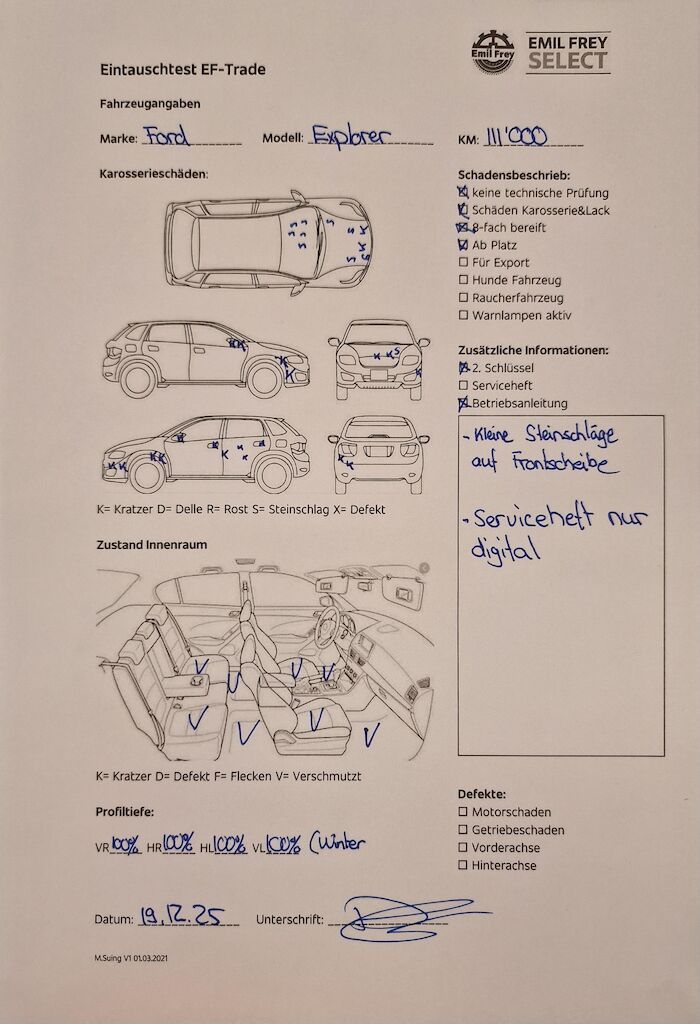 Emil Frey
EMIL FREY
SELECT
Eintauschtest EF-Trade
Fahrzeugangaben
Marke: Ford Modell: Explorer KM: 111'000
Karosserieschäden:
S S S S S S S S K S K K S S
K K K K
K K S K
K K K K K K K K K
K K
K= Kratzer D= Delle R= Rost S= Steinschlag X= Defekt
Schadensbeschrieb:
keine technische Prüfung
Schäden Karosserie&Lack
8-fach bereift
Ab Platz
Für Export
Hunde Fahrzeug
Raucherfahrzeug
Warnlampen aktiv
Zusätzliche Informationen:
2. Schlüssel
Serviceheft
Betriebsanleitung
- Kleine Steinschläge
auf Frontscheibe
- Serviceheft nur
digital
Zustand Innenraum
V V V V
V V V V
K= Kratzer D= Defekt F= Flecken V= Verschmutzt
Profiltiefe:
VR 100% HR 100% HL 100% VL 100% (Winter
Defekte:
Motorschaden
Getriebeschaden
Vorderachse
Hinterachse
Datum: 19.12.25 Unterschrift:
M.Suing V1 01.03.2021